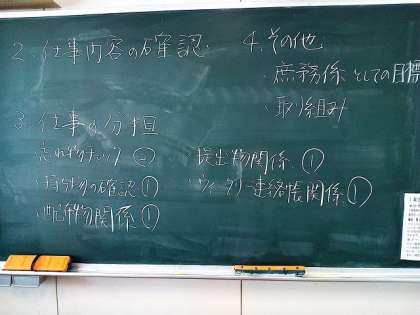 2.仕事内容の確認
3.仕事の分担
忘れ物チェック ②
・持ち物の確認 ①
・配布物関係 ①
提出物関係 ①
・ウィークリー連絡帳関係 ①
4.その他
・庶務係としての目標
・取り組み